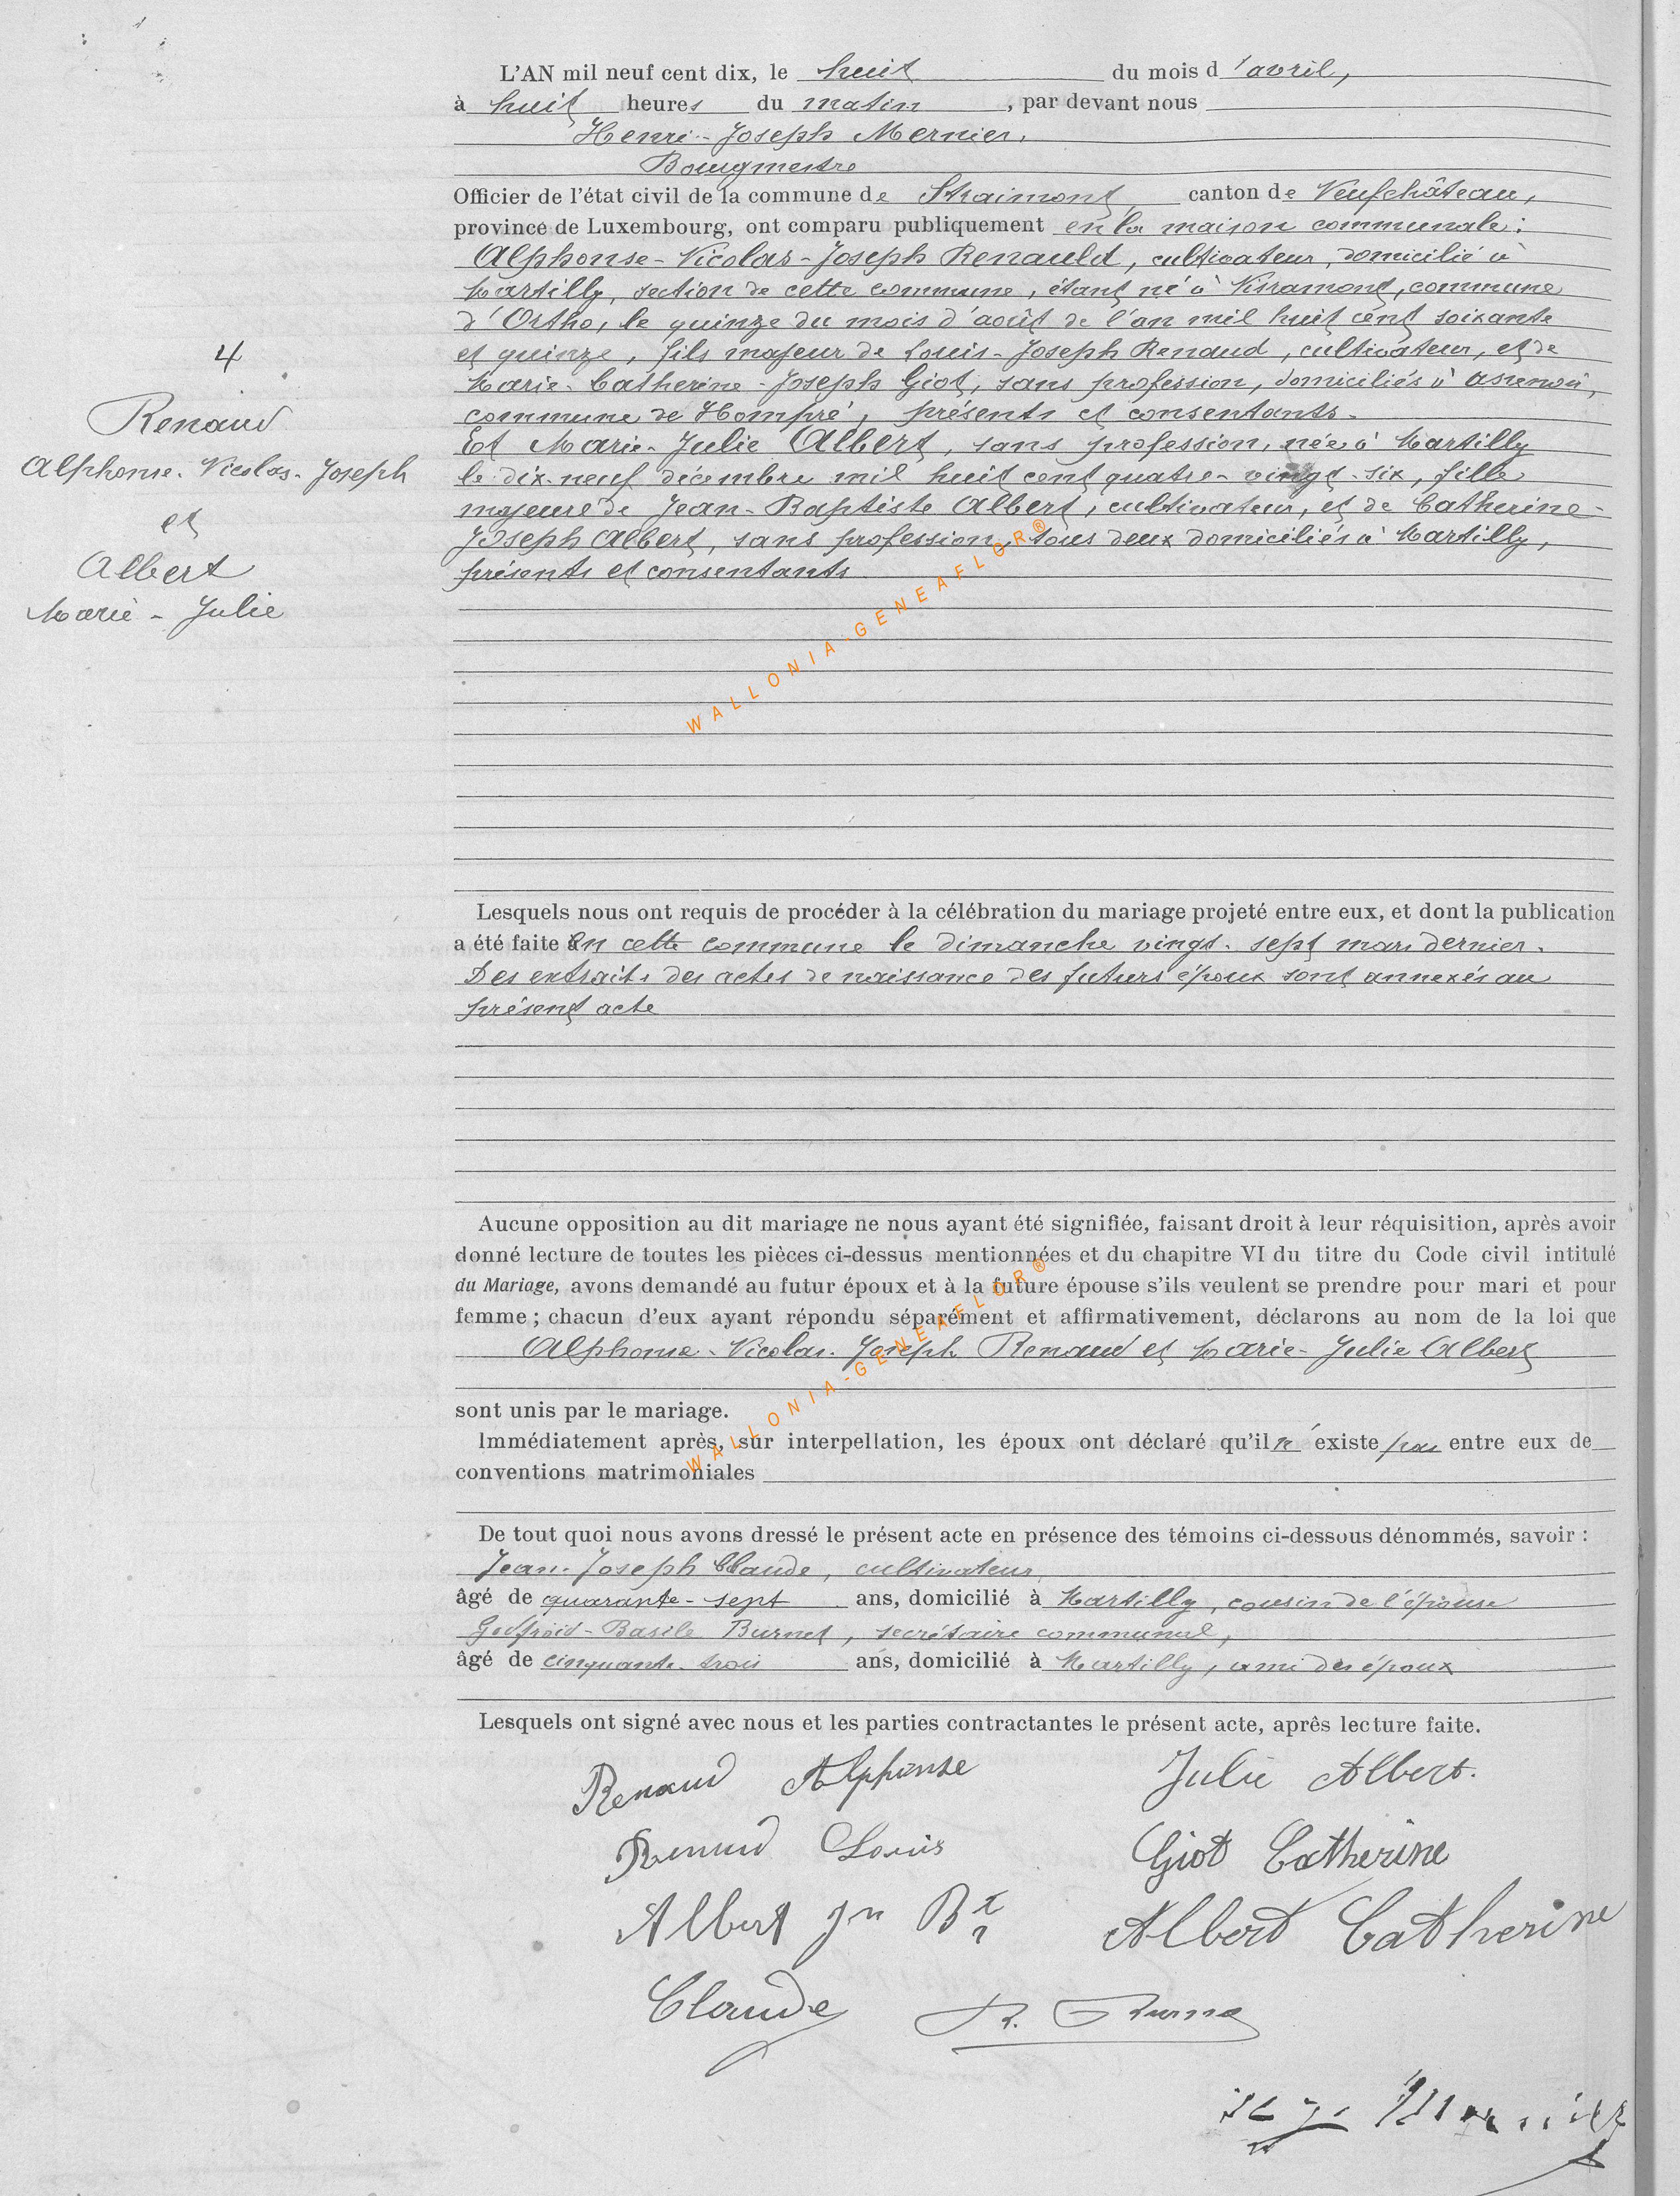 L'AN mil neuf cent dix, le huit du mois d'avril,
à huit heures du matin, par devant nous
Henri-Joseph Mernier,
Bourgmestre
Officier de l'état civil de la commune de Straimont, canton de Neufchâteau,
province de Luxembourg, ont comparu publiquement en la maison communale:
Alphonse-Nicolas-Joseph Renauld, cultivateur, domicilié à
Martilly, section de cette commune, étant né à Nisramont, commune
d'Ortho, le quinze du mois d'août de l'an mil huit cent soixante
et quinze, fils majeur de Louis-Joseph Renaud, cultivateur, et de
Marie-Catherine-Joseph Giot, sans profession, domiciliés à Assenois,
commune de Hompré, présents et consentants.
Et Marie-Julie Albert, sans profession, née à Martilly
le dix-neuf décembre mil huit cent quatre-vingt-six, fille
majeure de Jean-Baptiste Albert, cultivateur, et de Catherine-
Joseph Albert, sans profession, tous deux domiciliés à Martilly,
présents et consentants.
4
Renaud
Alphonse-Nicolas-Joseph
et
Albert
Marie-Julie
WALLONIA-GENEAFLOR®
Lesquels nous ont requis de procéder à la célébration du mariage projeté entre eux, et dont la publication
a été faite en cette commune le dimanche vingt-sept mars dernier.
Des extraits des actes de naissance des futurs époux sont annexés au
présent acte
Aucune opposition au dit mariage ne nous ayant été signifiée, faisant droit à leur réquisition, après avoir
donné lecture de toutes les pièces ci-dessus mentionnées et du chapitre VI du titre du Code civil intitulé
du Mariage, avons demandé au futur époux et à la future épouse s'ils veulent se prendre pour mari et pour
femme ; chacun d'eux ayant répondu séparément et affirmativement, déclarons au nom de la loi que
Alphonse-Nicolas-Joseph Renaud et Marie-Julie Albert
WALLONIA-GENEAFLOR®
sont unis par le mariage.
Immédiatement après, sur interpellation, les époux ont déclaré qu'il n'existe pas entre eux de
conventions matrimoniales
De tout quoi nous avons dressé le présent acte en présence des témoins ci-dessous dénommés, savoir :
Jean-Joseph Claude, cultivateur,
âgé de quarante-sept ans, domicilié à Martilly, cousin de l'épouse
Godfroid-Basile Burnet, secrétaire communal,
âgé de cinquante-trois ans, domicilié à Martilly, ami des époux
Lesquels ont signé avec nous et les parties contractantes le présent acte, après lecture faite.
Renaud Alphonse Julie Albert.
Renaud Louis Giot Catherine
Albert Jn Bte Albert Catherine
Claude B. Burnet
H J Mernier